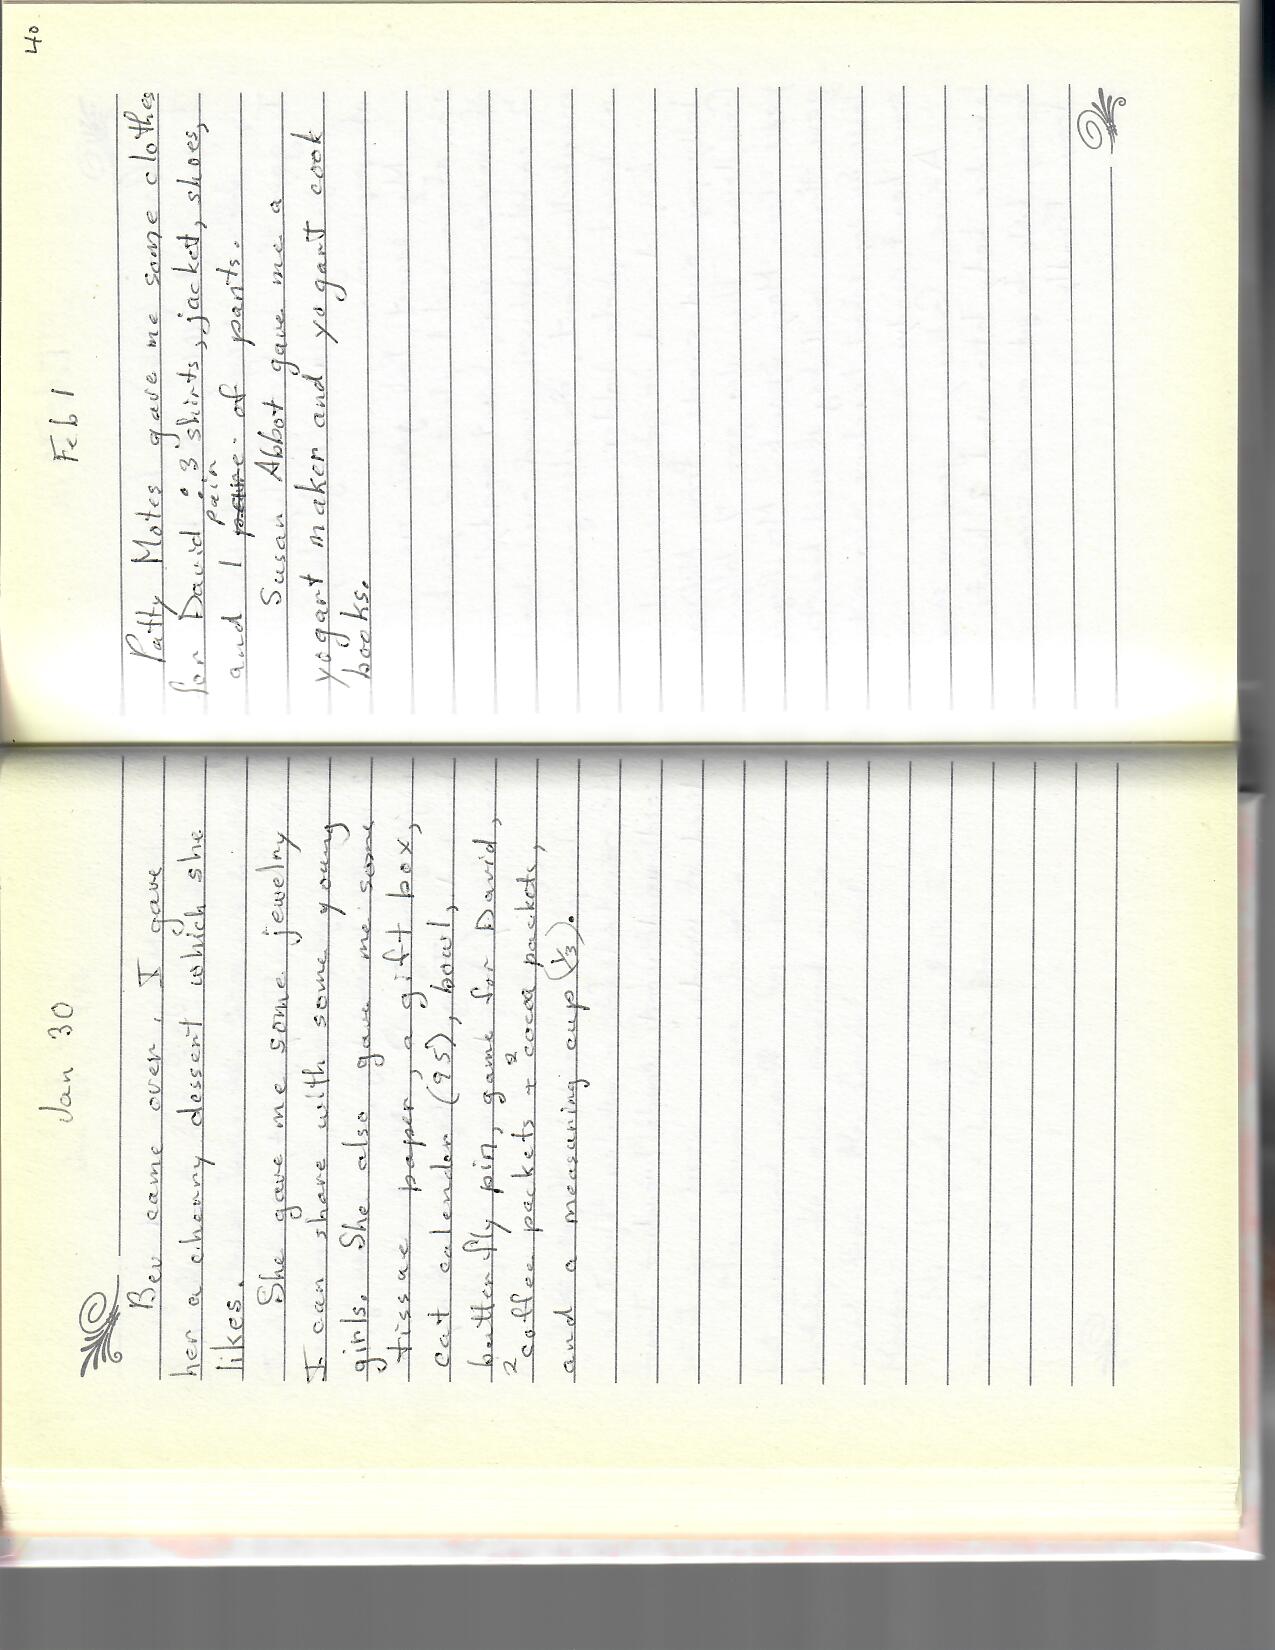 Jan 30
Bev came over. I gave
her a cherry dessert which she
likes.
She gave me some jewelry
I can share with some young
girls. She also gave me some
tissue paper, a gift box,
cat calendar (95), bowl,
butterfly pin, game for David,
2 coffee packets + 2 cocoa packets,
and a measuring cup (1/3).
40
Feb 1
Patty Motes gave me some clothes
for David: 3 shirts, jacket, shoes,
and 1 pair of pants.
Susan Abbot gave me a
yogart maker and yogart cook
books.